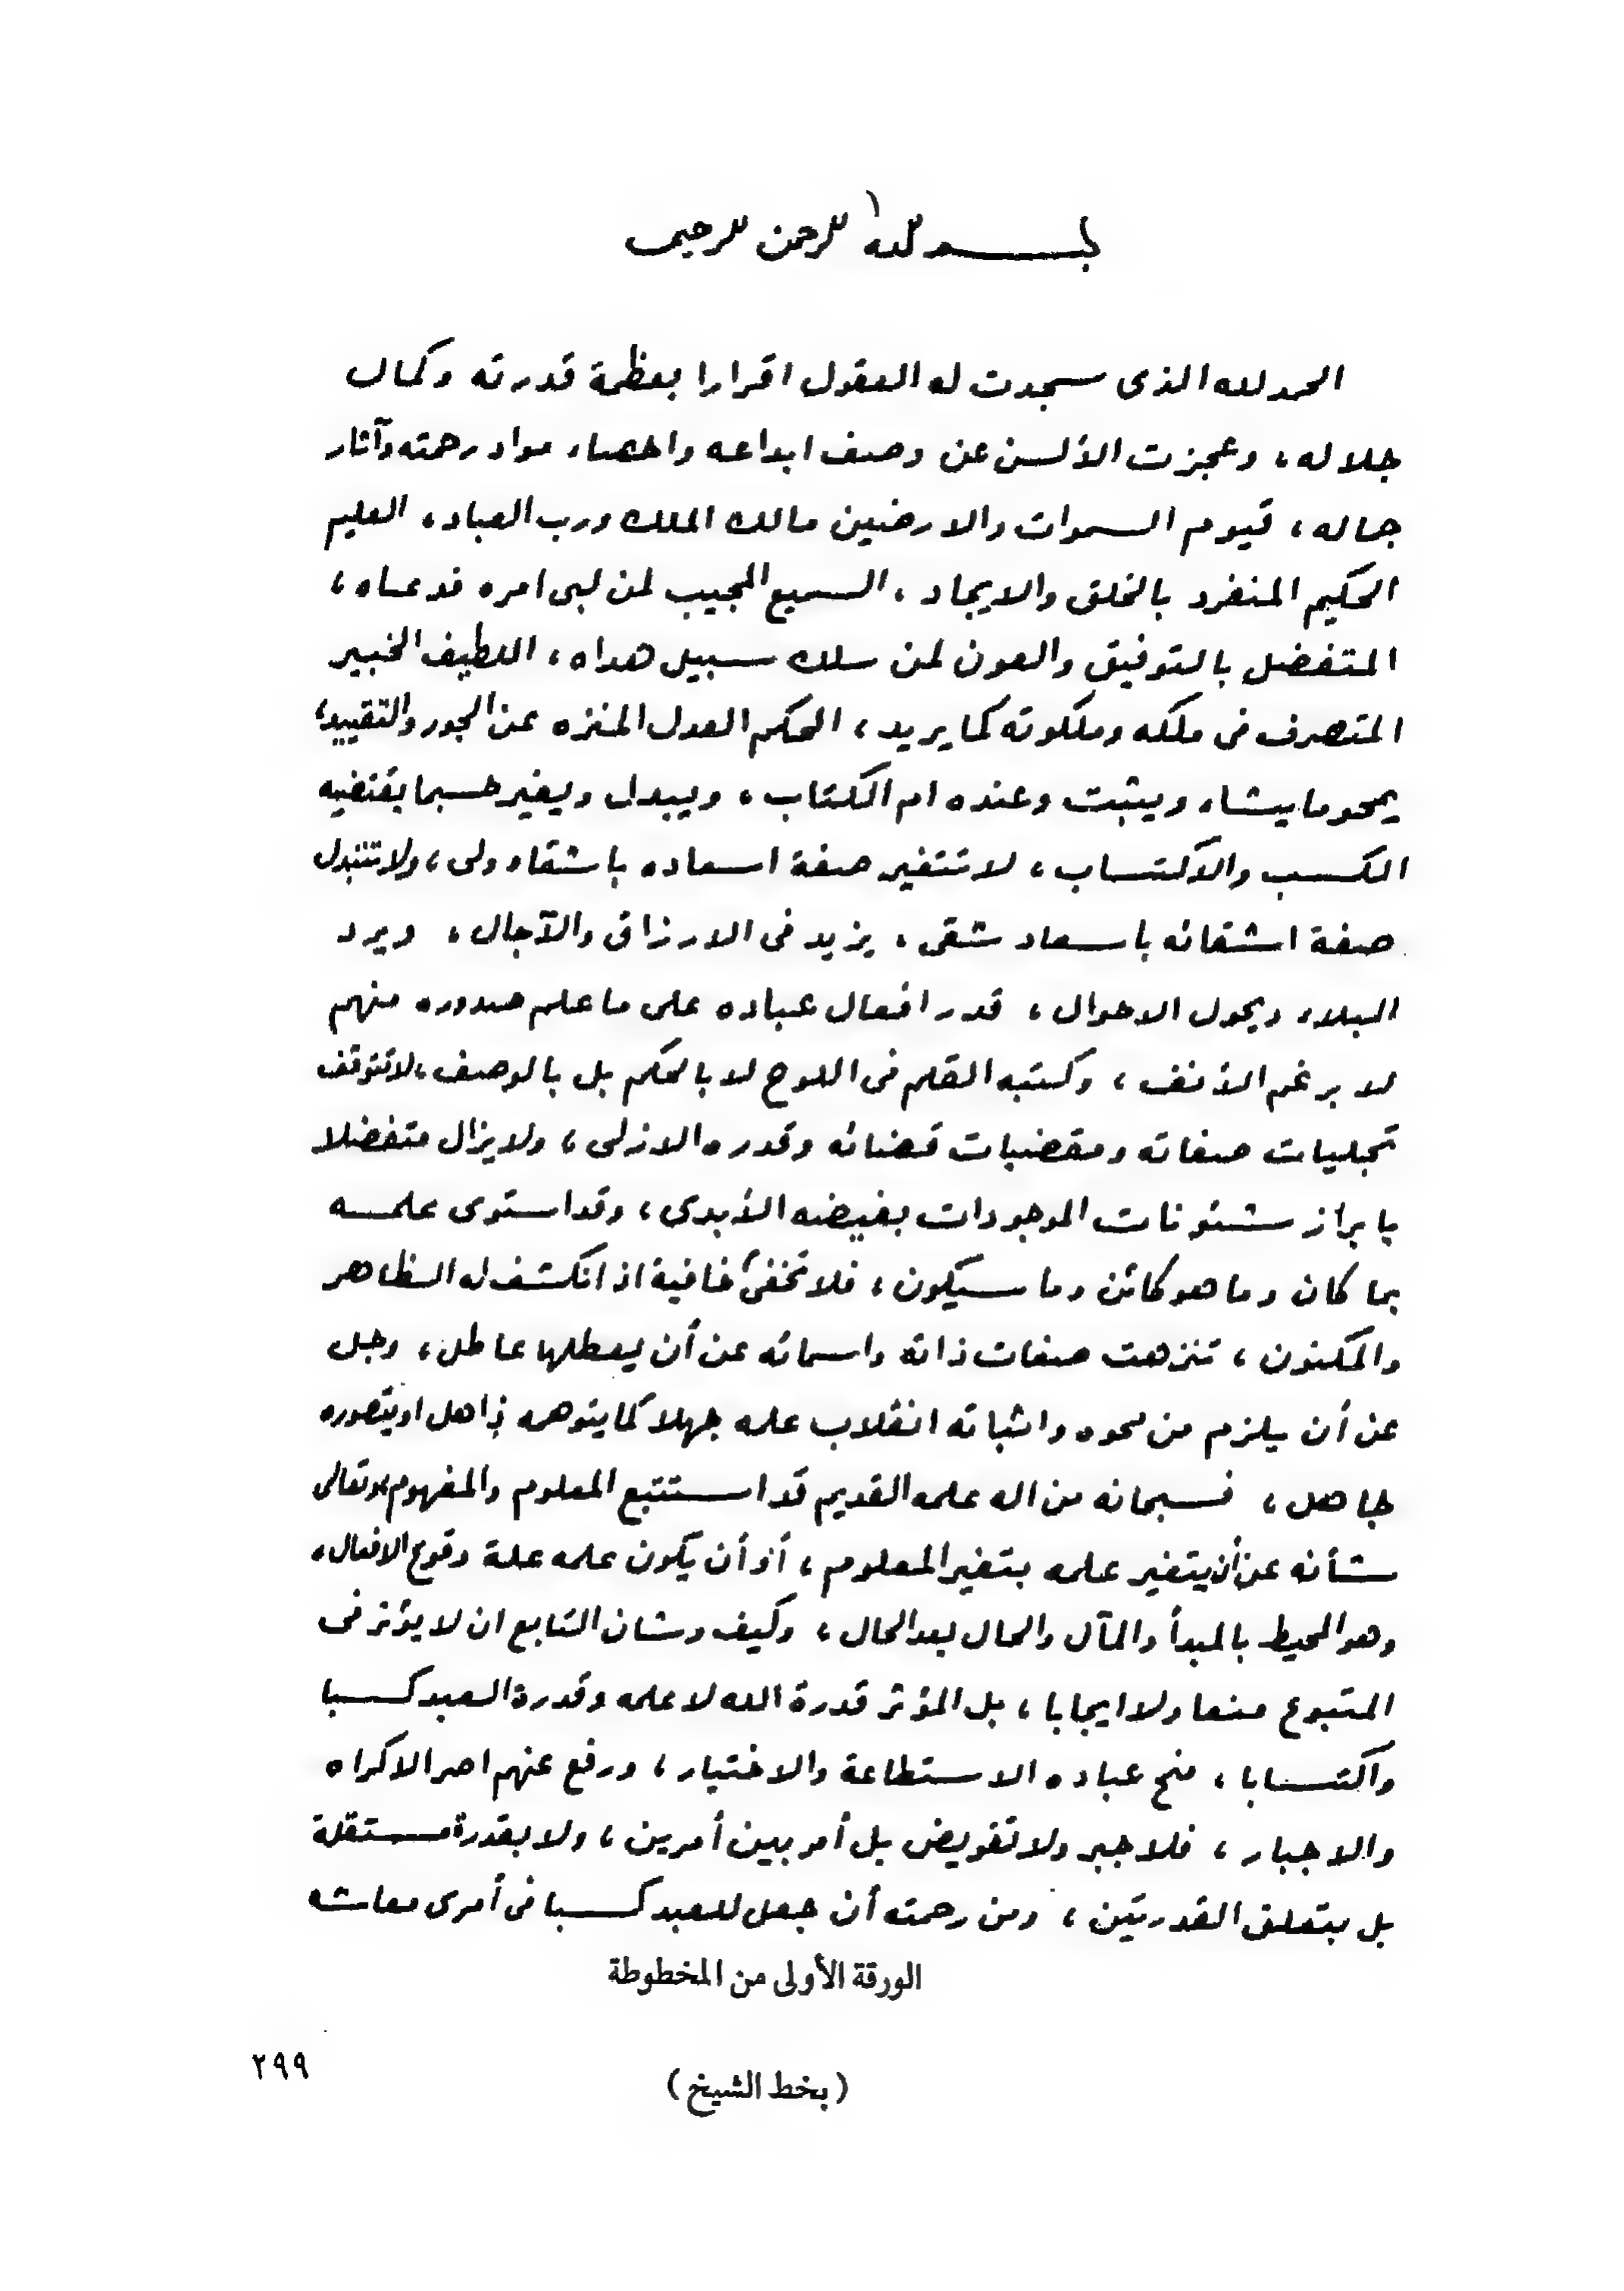 بسم الله الرحمن الرحيم
الحمد لله الذى سجدت له العقول اقرارا بعظمة قدرته وكمال
جلاله، وعجزت الألسن عن وصف ابداعه واحصاء مواد رحمته وآثار
جماله، قيوم السموات والارضين مالك الملك ورب العباد، العليم
الحكيم المنفرد بالخلق والايجاد، السميع المجيب لمن لبى امره فدعاه،
المتفضل بالتوفيق والعون لمن سلك سبيل هداه، اللطيف الخبير
المتصرف فى ملكه وملكوته كما يريد، الحكم العدل المنزه عن الجور والتقييد،
يمحو ما يشاء ويثبت وعنده ام الكتاب، ويبدل ويغير حسبما يقتضيه
الكسب والاكتساب، لا تتغير صفة اسعاده باشقاء ولى، ولا تتبدل
صفة اشقائه باسعاد شقى، يزيد فى الارزاق والآجال، ويرد
البلاء ويحول الاحوال، قدر افعال عباده على ما علم صدوره منهم
لا برغم الأنف، وكتبه القلم فى اللوح لا بالحكم بل بالوصف، لا تتوقف
تجليات صفاته ومقضيات قضائه وقدره الازلى، ولا يزال متفضلا
بابراز شئونات الموجودات بفيضه الأبدى، وقد استوى علمه
بما كان وما هو كائن وما سيكون، فلا تخفى خافية اذ انكشف له الظاهر
والمكنون، تنزهت صفات ذاته واسمائه عن أن يعطلها عاطل، وجل
عن أن يلزم من محوه واثباته انقلاب علمه جهلا كما يتوهمه ذاهل او يتصوره
جاهل، فسبحانه من اله علمه القديم قد استتبع المعلوم والمفهوم، وتعالى
شأنه عن أن يتغير علمه بتغير المعلوم، أو أن يكون علمه علة وقوع الافعال،
وهو المحيط بالمبدأ والمآل والحال بعد الحال، وكيف وشان التابع ان لا يؤثر فى
المتبوع منعا ولا ايجابا، بل المؤثر قدرة الله لا علمه وقدرة العبد كسبا
واكتسابا، منح عباده الاستطاعة والاختيار، ورفع عنهم اصر الاكراه
والاجبار، فلا جبر ولا تفويض بل أمر بين أمرين، ولا بقدرة مستقلة
بل بتعلق القدرتين، ومن رحمته أن جعل للعبد كسبا فى أمرى معاشه
الورقة الأولى من المخطوطة
(بخط الشيخ)
٢٩٩